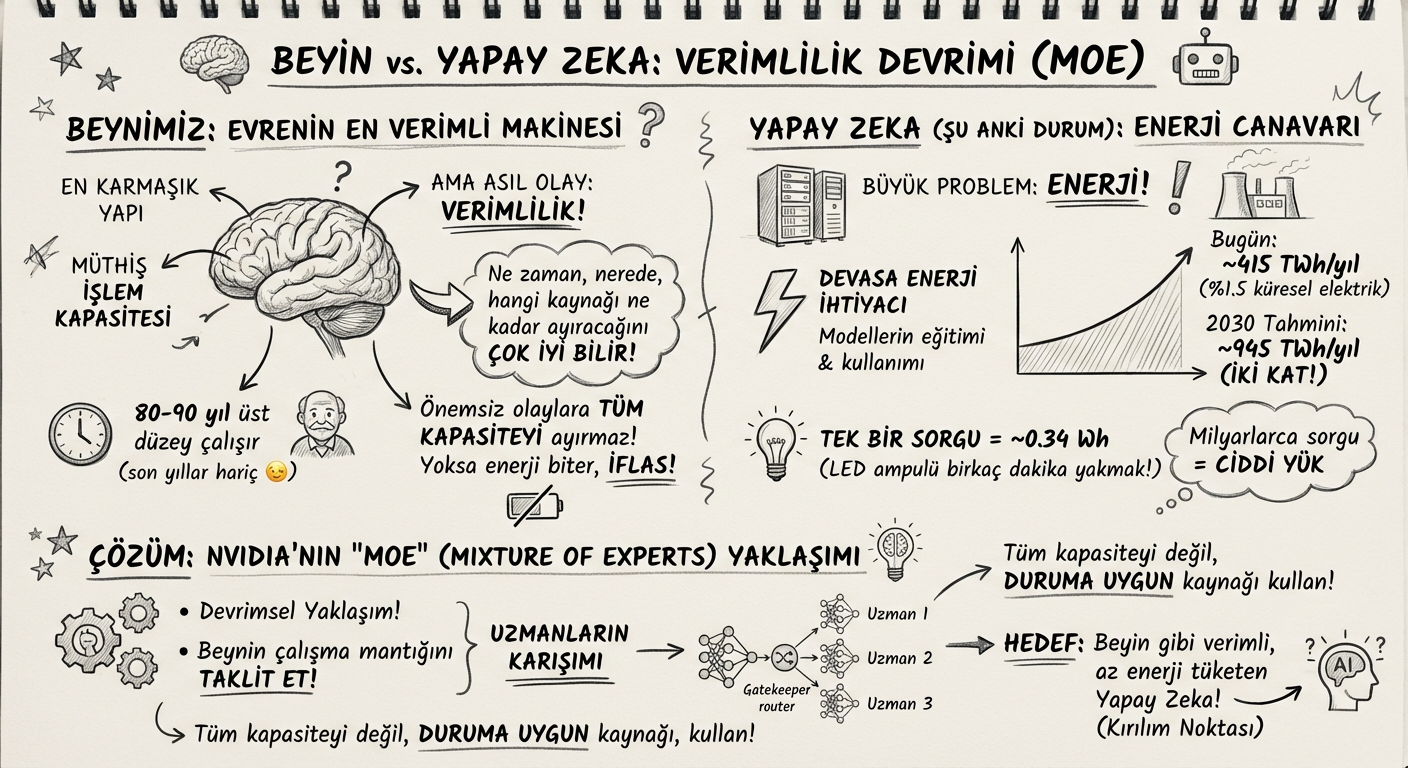 BEYİN vs. YAPAY ZEKA: VERİMLİLİK DEVRİMİ (MOE)
BEYNİMİZ: EVRENİN EN VERİMLİ MAKİNESİ ?
?
EN KARMAŞIK
YAPI
AMA ASIL OLAY:
VERİMLİLİK!
MÜTHİŞ
İŞLEM
KAPASİTESİ
Ne zaman, nerede,
hangi kaynağı ne
kadar ayıracağını
ÇOK İYİ BİLİR!
80-90 yıl üst
düzey çalışır
(son yıllar hariç 😉)
Önemsiz olaylara TÜM
KAPASİTEYİ ayırmaz!
Yoksa enerji biter, İFLAS!
YAPAY ZEKA (ŞU ANKİ DURUM): ENERJİ CANAVARI
BÜYÜK PROBLEM: ENERJİ! !
DEVASA ENERJİ
İHTİYACI
Modellerin eğitimi
& kullanımı
Bugün:
~415 TWh/yıl
(%1.5 küresel elektrik)
2030 Tahmini:
~945 TWh/yıl
(İKİ KAT!)
TEK BİR SORGU = ~0.34 Wh
(LED ampulü birkaç dakika yakmak!)
Milyarlarca sorgu
= CİDDİ YÜK
ÇÖZÜM: NVIDIA'NIN "MOE" (MIXTURE OF EXPERTS) YAKLAŞIMI
• Devrimsel Yaklaşım!
• Beynin çalışma mantığını
TAKLİT ET!
Tüm kapasiteyi değil, DURUMA UYGUN kaynağı, kullan!
UZMANLARIN
KARIŞIMI
Gatekeeper
router
Uzman 1
Uzman 2
Uzman 3
Tüm kapasiteyi değil,
DURUMA UYGUN kaynağı kullan!
HEDEF: Beyin gibi verimli,
az enerji tüketen
Yapay Zeka!
(Kırılım Noktası)
? ?
AI